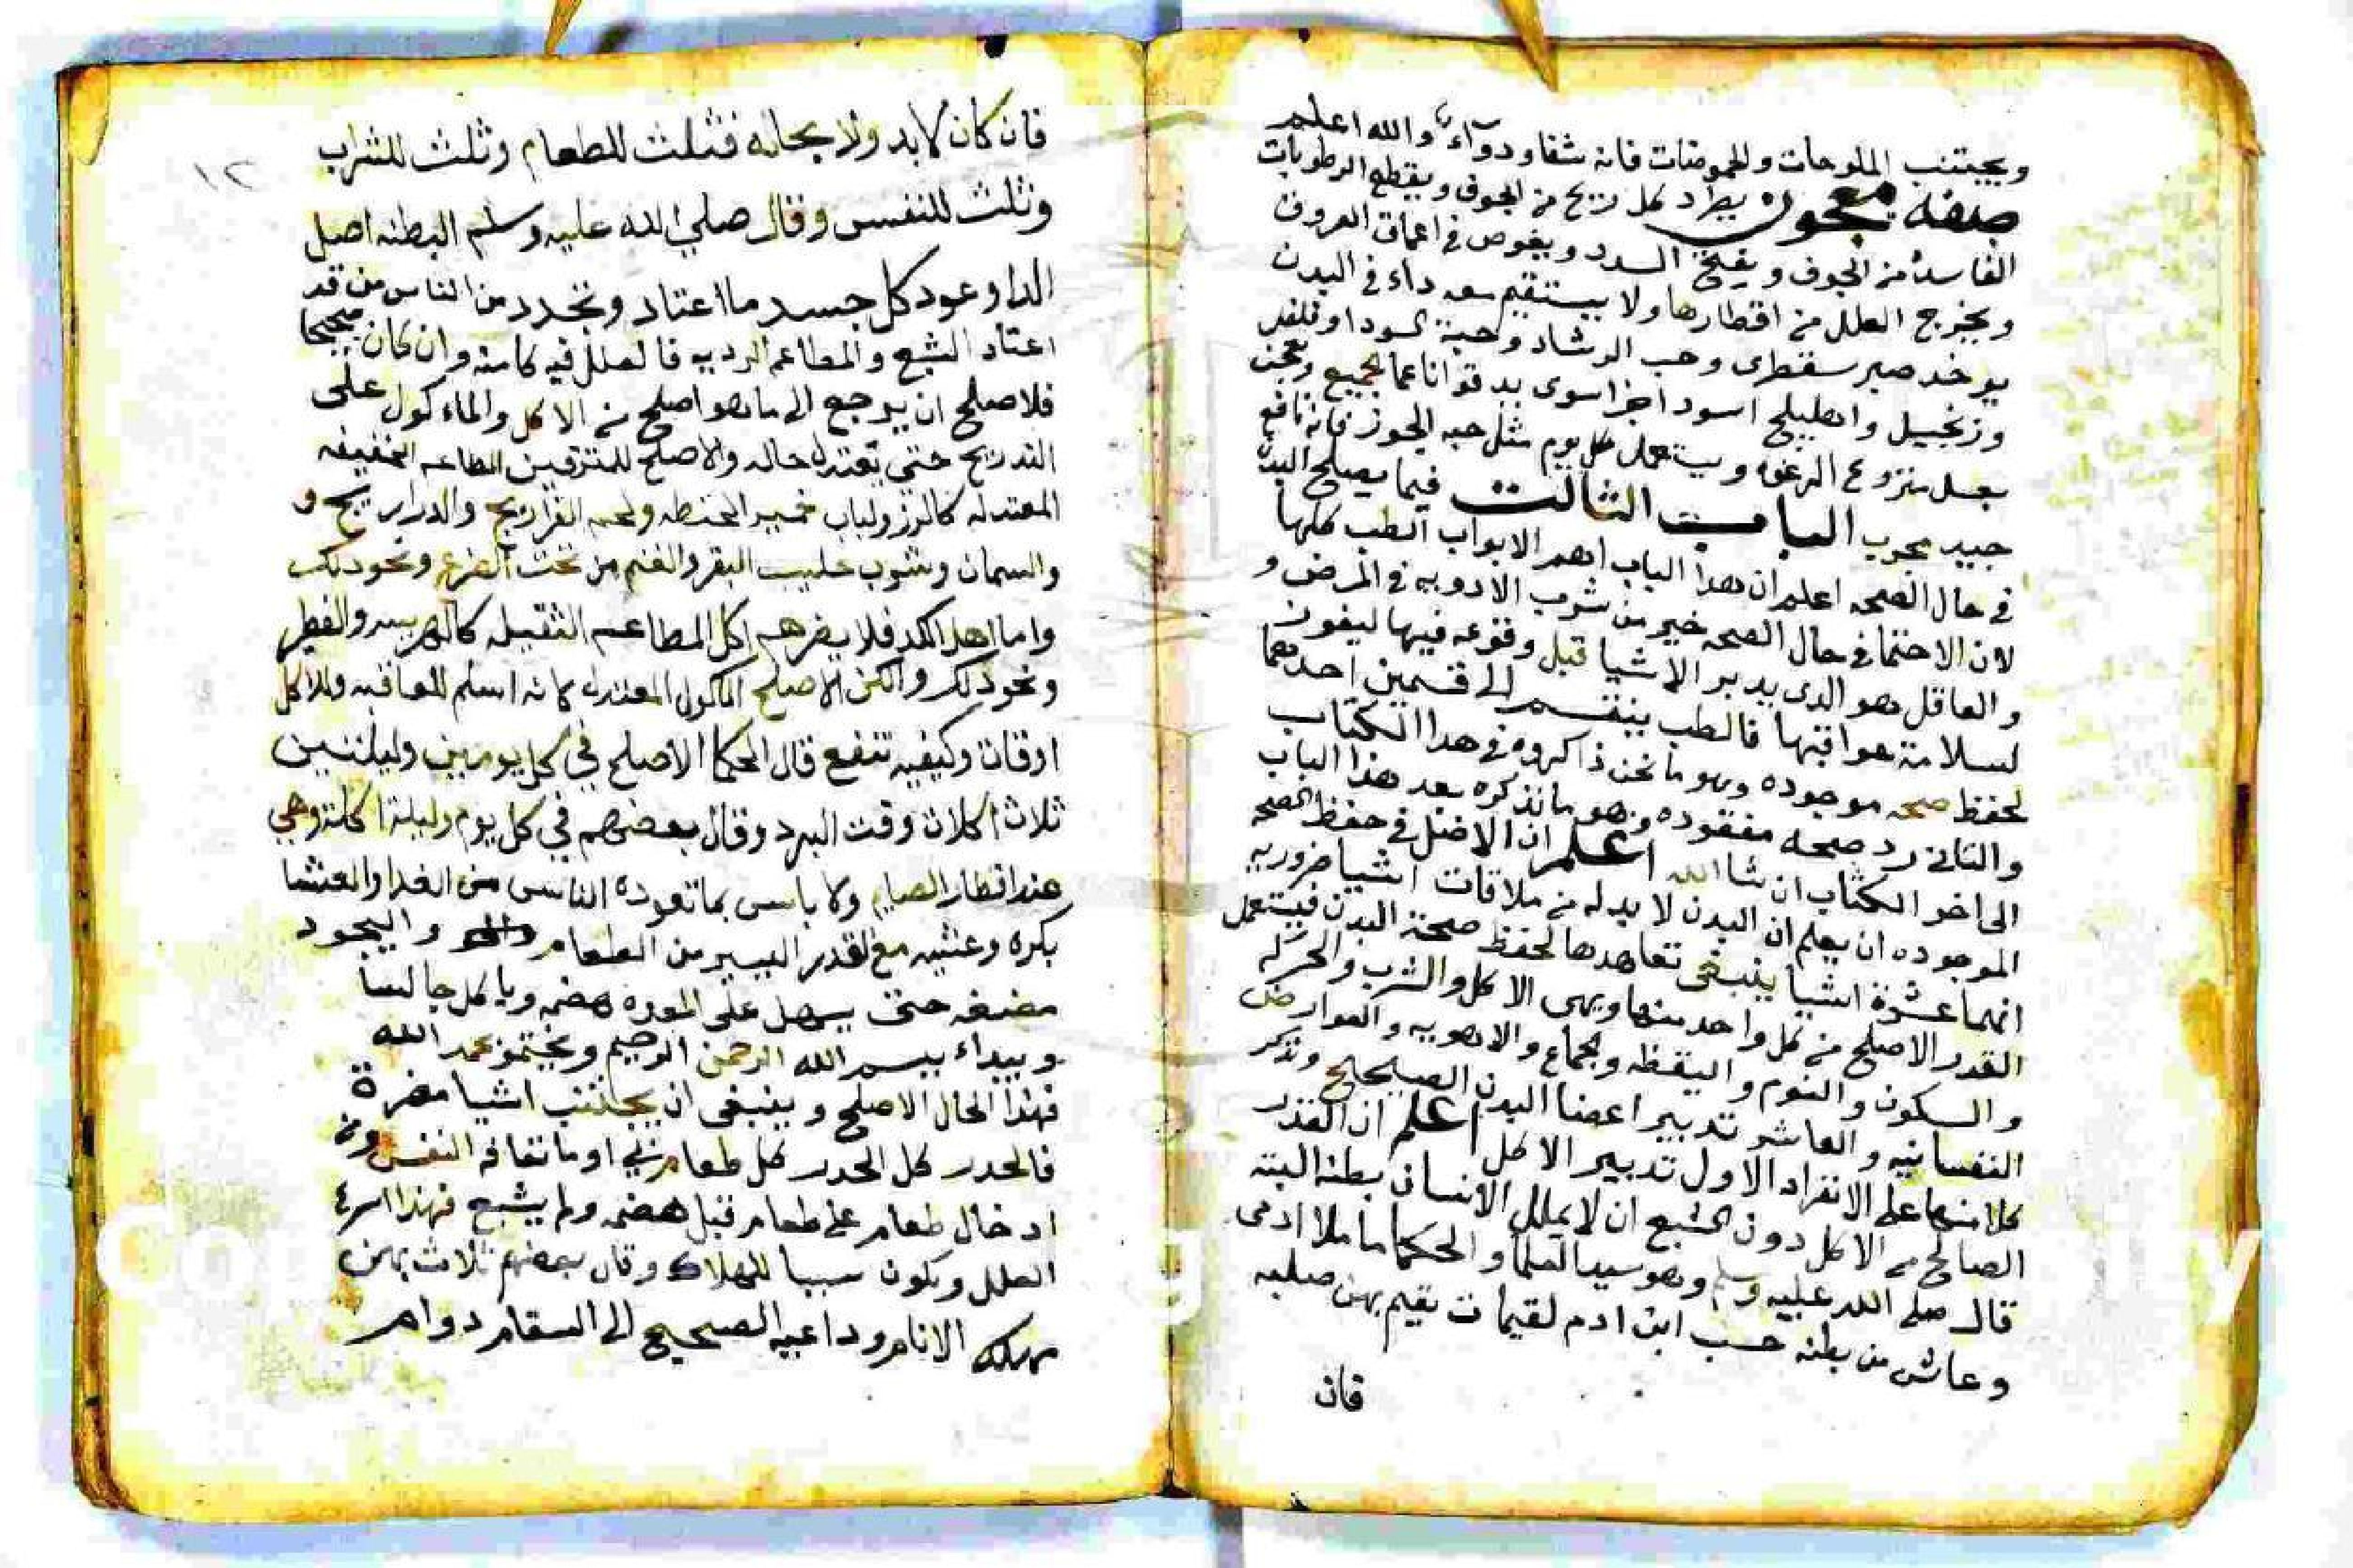 ويجتنب الملوحات والحموضات فانه شفا ودوآء والله اعلم
صفة معجون يطرد كل ريح من الجوف ويقطع الرطوبات
الفاسدة من الجوف ويفتح السدد ويغوص في اعماق العروق
ويخرج العلل من اقطارها ولا يستقيم معه داء في البدن
يوخد صبر سقطرى وحب الرشاد وحبة السودا وفلفل
وزنجبيل واهليلج اسود اجزا سوى يدقوا ناعما الجميع وتعجن
بعسل منزوع الرغوه ويستعمل كل يوم مثل حبه الجوز فانه نافع
جيد مجرب الباب الثالث فيما يصلح البدن
في حال الصحه اعلم ان هدا الباب اهم الابواب الطب كلها
لان الاحتما في حال الصحه خير من شرب الادويه في المرض و
والعاقل هو الدى يدبر الاشيا قبل وقوعه فيها ليفون
لسلامة عواقبها فالطب ينقسم الى قسمين احدهما
لحفظ صحه موجوده وهو ما نحن ذاكروه في هدا الكتاب
والثاني رد صحه مفقوده وهو ما نذكره بعد هذا الباب
الى اخر الكتاب ان شا الله اعلم ان الافضل في حفظ الصحه
الموجوده ان يعلم ان البدن لا بد له من ملاقات اشيا ضروريه
انهما عشرة اشيا ينبغى تعاهدها لحفظ صحة البدن فيستعمل
القدر الاصلح من كل واحد منها وهي الاكل والشرب والحركه
والسكون والنوم واليقظه والجماع والاهويه والعوارض
النفسانيه والعاشر تدبير اعضا البدن الصحيح ونذكر
كلا منها على الانفراد الاول تدبير الاكل اعلم ان القدر
الصالح من الاكل دون الشبع ان لا يملل الانسان بطنه البته
قال صلى الله عليه وسلم وهو سيد العلما والحكما ما ملا ادمى
وعاش من بطنه حسب ابن ادم لقيمات يقيم بهن صلبه
فان
١٢
فان كان لا بد ولا بحاله فثلث للطعام وثلث للشراب
وثلث للنفس وقال صلي الله عليه وسلم البطنه اصل
الدا وعود كل جسد ما اعتاد وتجدد من الناس من قد
اعتاد الشبع والمطاعم الرديه فالعلل فيه كامنه وان كان صحيحا
فلاصلح ان يرجع الى ما هو اصلح من الاكل والماءكول على
التدريج حتى تعتدل حاله والاصلح للمترفين المطاعم الخفيفه
المعتدله كالرز ولباب خمير الحنطه ولحم الفراريج والدراريج و
والسمان وشوب حليب البقر والغنم من تحت الضرع ونحو دلك
واما اهل الكد فلا يضرهم اكل المطاعم الثقيله كالهريسه والفطير
ونحو ذلك ولكن الاصلح الماكول المعتدل كانه اسلم للعاقبه وللاكل
اوقات وكيفيه تنفع قال الحكما الاصلح في كل يومين وليلتين
ثلاث اكلات وقت البرد وقال بعضهم في كل يوم وليلة اكلة وهي
عند افطار الصيام ولا باس بما تعوده الناس من الغدا والعشا
بكره وعشيه مع القدر اليسير من الطعام واليجود
مضغه حتى يسهل على المعده هضمه وياكل جالسا
ويبداء ببسم الله الرحمن الرحيم ويختمو بحمد الله
فهذا الحال الاصلح وينبغى ان يجتنب اشيا مضرة
فالحدر كل الحدر كل طعام ني او ما تعافه النفس ومن
ادخال طعام على طعام قبل هضمه ولم يشبع فهذا اسرع
العلل ويكون سببا للهلاك وقال بعضهم ثلاث بهن
مهلكه الانام وداعيه الصحيح الى السقام دوام